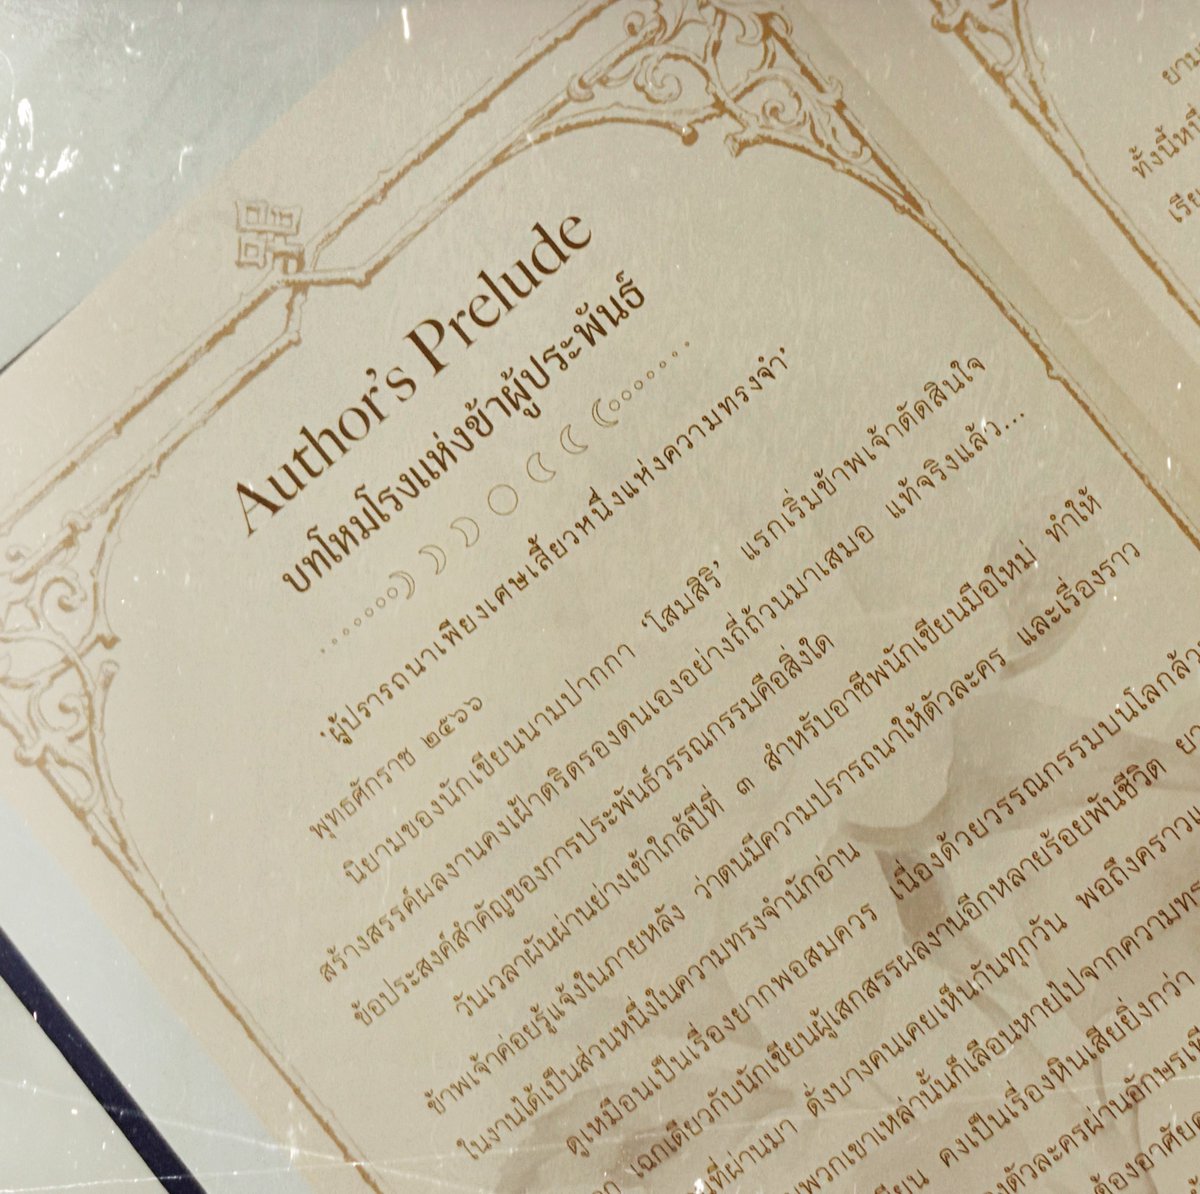 Author's Prelude
บทโหมโรงแห่งข้าผู้ประพันธ์
'ผู้ปรารถนาเพียงเศษเสี้ยวหนึ่งแห่งความทรงจำ'
พุทธศักราช ๒๕๖๖
นิยามของนักเขียนนามปากกา 'โสมสิริ' แรกเริ่มข้าพเจ้าตัดสินใจ
สร้างสรรค์ผลงานคงเฝ้าตริตรองตนเองอย่างถี่ถ้วนมาเสมอ แท้จริงแล้ว...
ข้อประสงค์สำคัญของการประพันธ์วรรณกรรมคือสิ่งใด
วันเวลาผันผ่านย่างเข้าใกล้ปีที่ ๓ สำหรับอาชีพนักเขียนมือใหม่ ทำให้
ข้าพเจ้าค่อยรู้แจ้งในภายหลัง ว่าตนมีความปรารถนาให้ตัวละคร และเรื่องราว
ในงานได้เป็นส่วนหนึ่งในความทรงจำนักอ่าน
ดูเหมือนเป็นเรื่องยากพอสมควร เนื่องด้วยวรรณกรรมบนโลกล้วน
เฉกเดียวกับนักเขียนผู้เสกสรรผลงานอีกหลายร้อยพันชีวิต
ที่ผ่านมา ดั่งบางคนเคยเห็นกันทุกวัน พอถึงคราว
พวกเขาเหล่านั้นก็เลือนหายไปจากความ
คงเป็นเรื่องหินเสียยิ่งกว่า
ตัวละครผ่านอักษร
ต้องอาศัย
ทั้งนี้